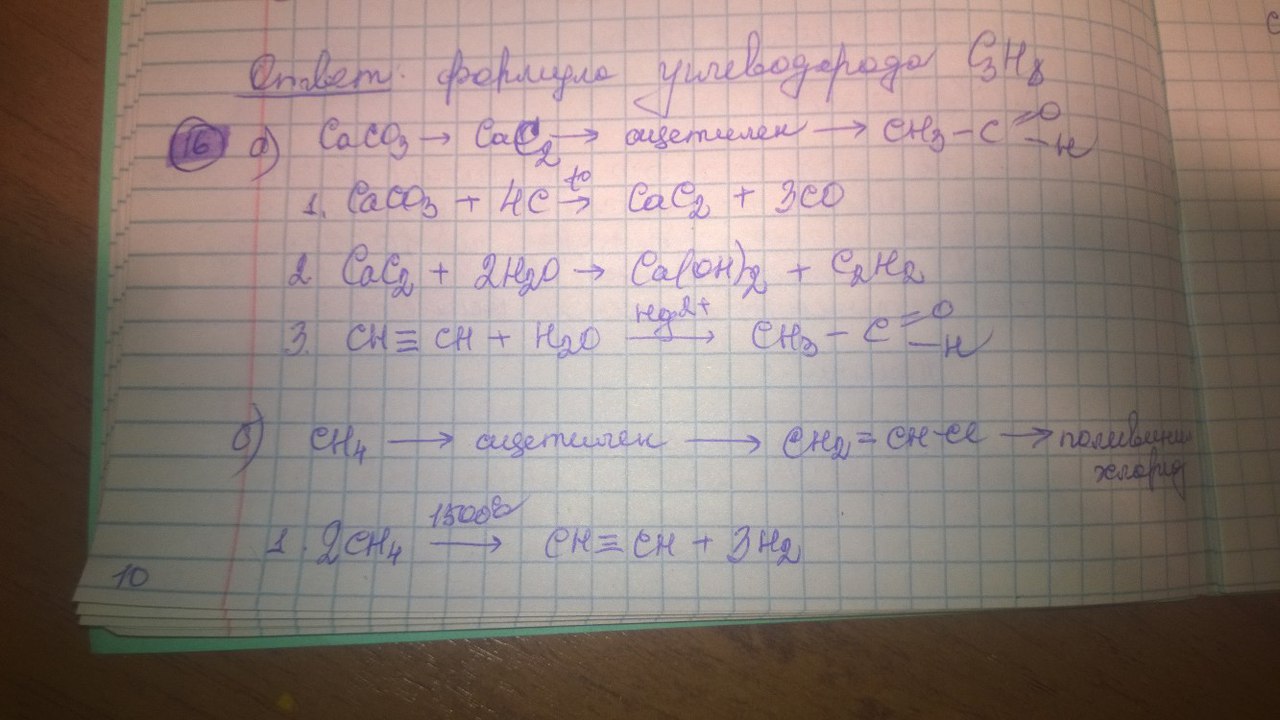 Ответ: формула углеводорода C₃H₈
16 а) CaCO₃ → CaC₂ → ацетилен → CH₃ – C =O –H
1. CaCO₃ + 4C t° → CaC₂ + 3CO
2. CaC₂ + 2H₂O → Ca(OH)₂ + C₂H₂
3. CH ≡ CH + H₂O Hg²⁺ → CH₃ – C =O –H
б) CH₄ → ацетилен → CH₂ = CH-Cl → поливинил
хлорид
1. 2CH₄ 1500°C → CH ≡ CH + 3H₂
10